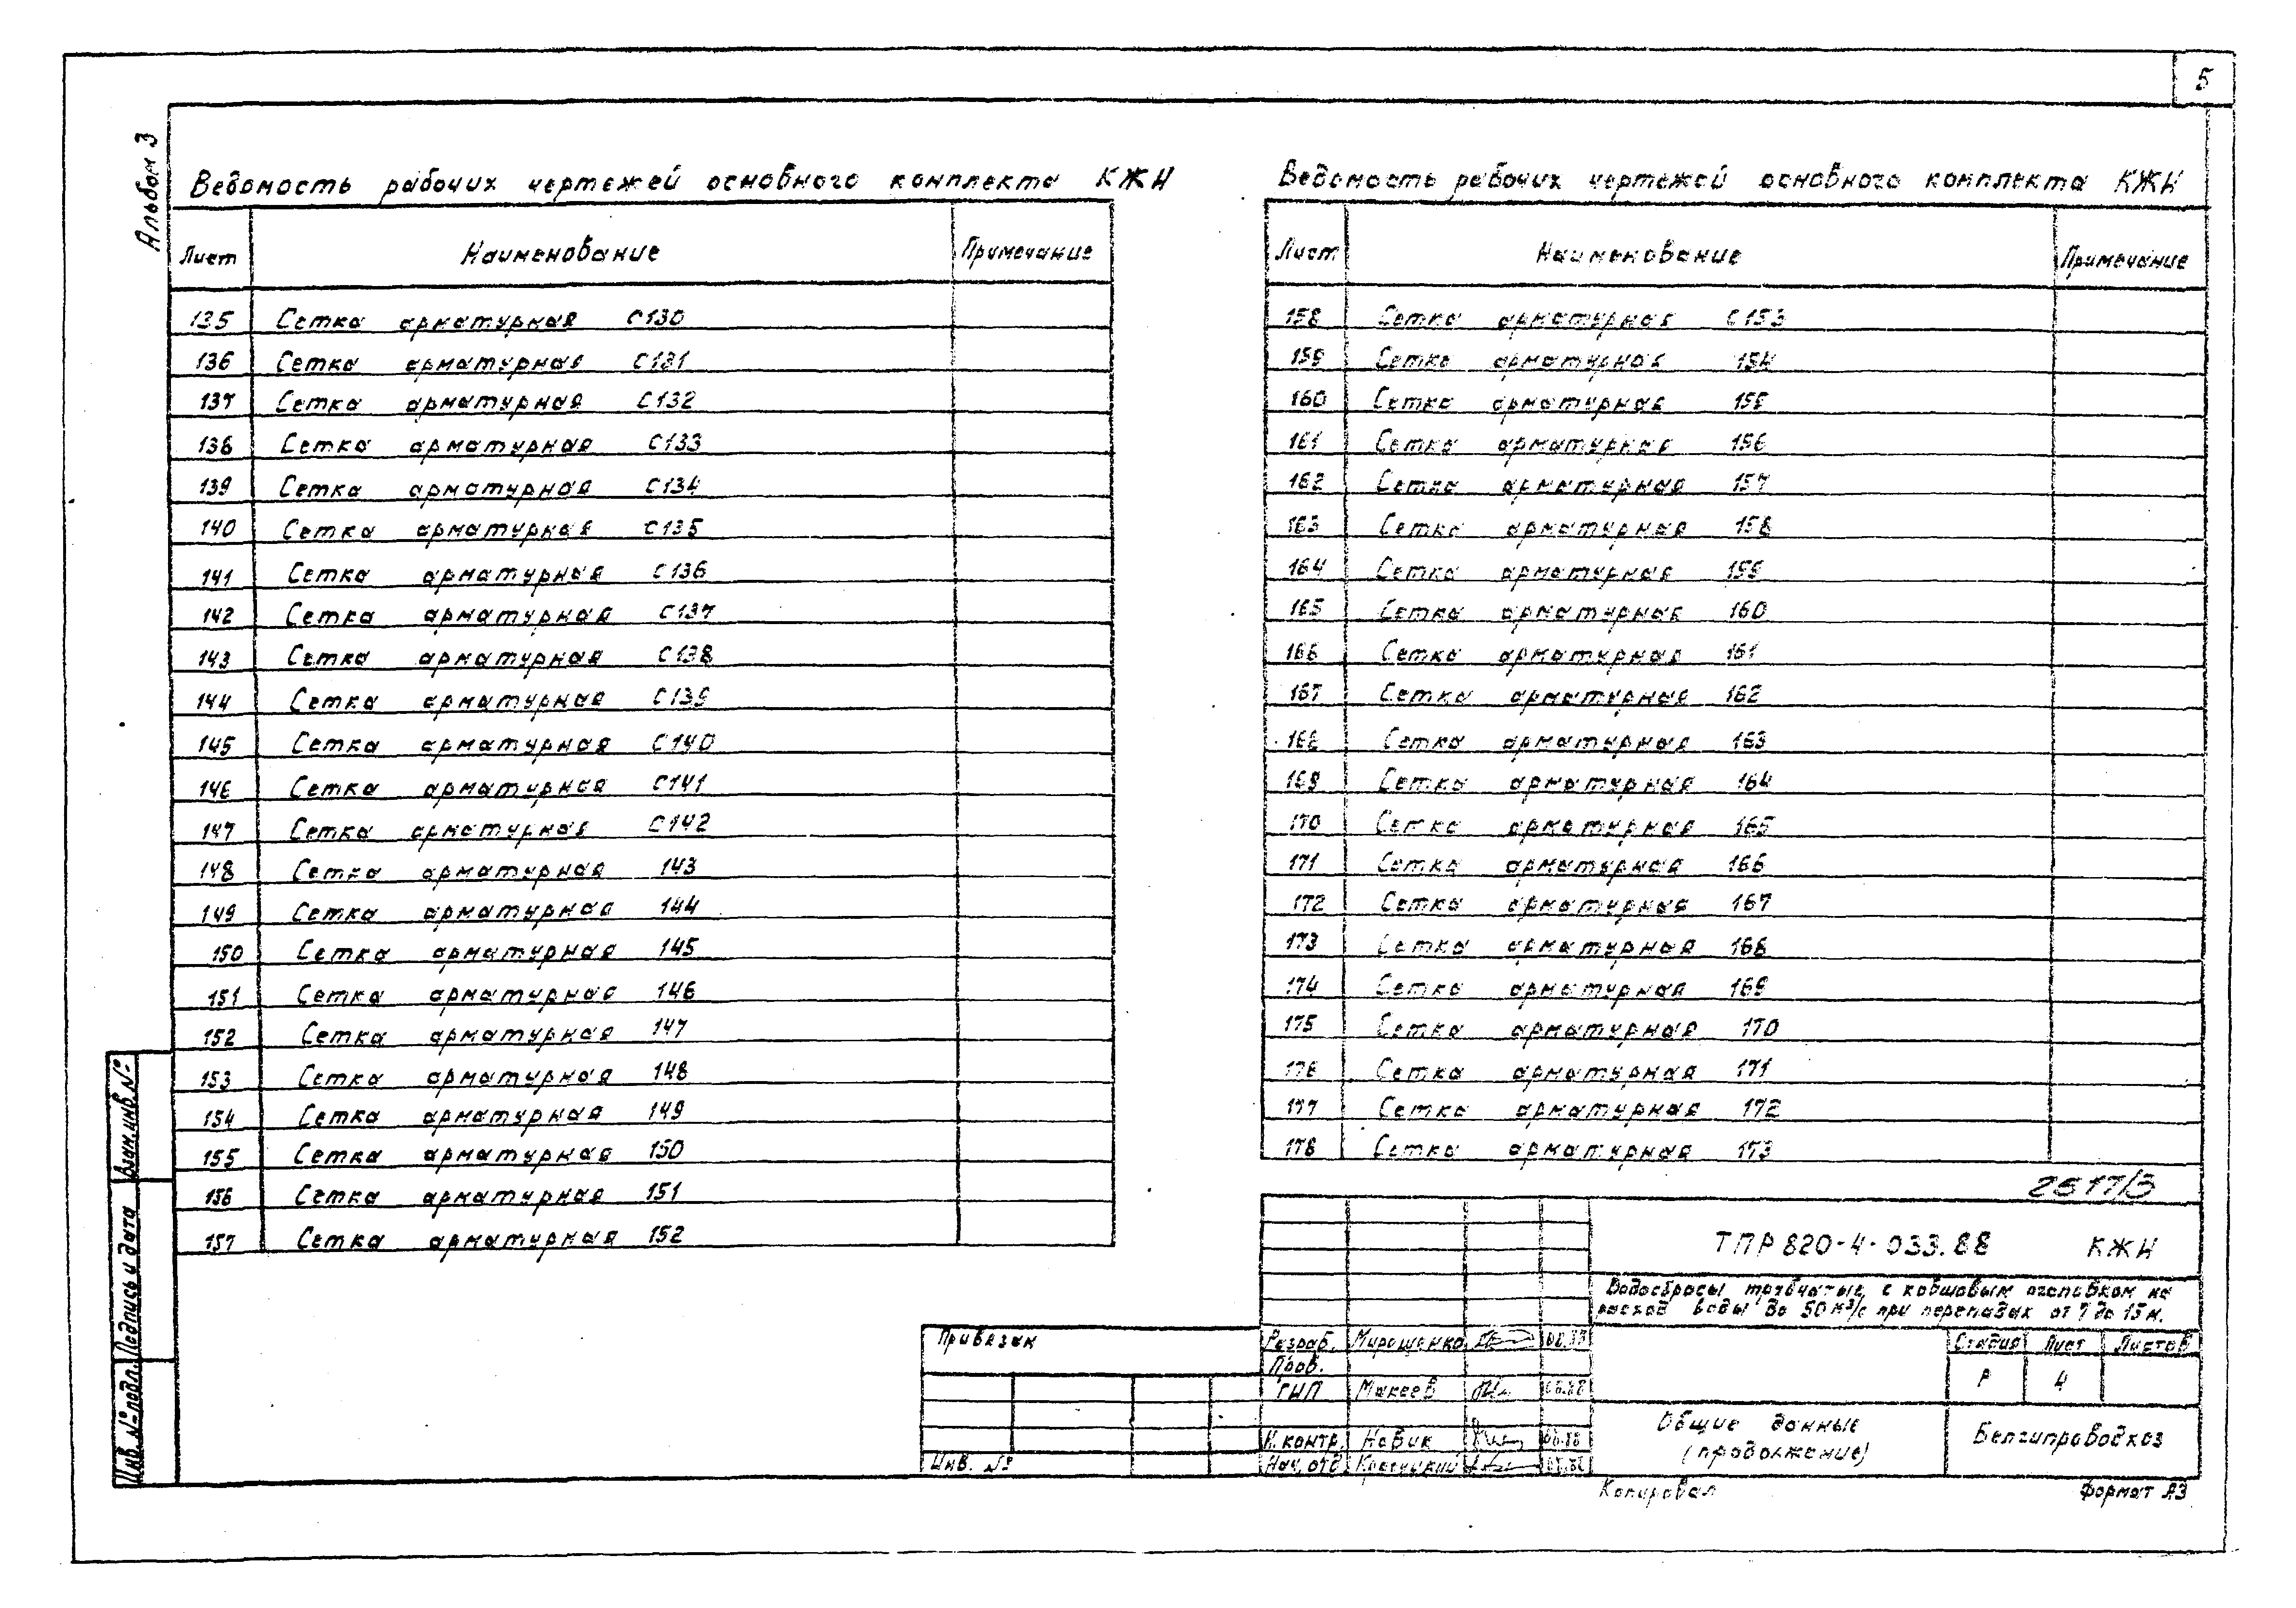 5
Альбом 3
Ведомость рабочих чертежей основного комплекта КЖН
Лист Наименование Примечание
135 Сетка арматурная С130
136 Сетка арматурная С131
137 Сетка арматурная С132
138 Сетка арматурная С133
139 Сетка арматурная С134
140 Сетка арматурная С135
141 Сетка арматурная С136
142 Сетка арматурная С137
143 Сетка арматурная С138
144 Сетка арматурная С139
145 Сетка арматурная С140
146 Сетка арматурная С141
147 Сетка арматурная С142
148 Сетка арматурная 143
149 Сетка арматурная 144
150 Сетка арматурная 145
151 Сетка арматурная 146
152 Сетка арматурная 147
153 Сетка арматурная 148
154 Сетка арматурная 149
155 Сетка арматурная 150
156 Сетка арматурная 151
157 Сетка арматурная 152
Ведомость рабочих чертежей основного комплекта КЖН
Лист Наименование Примечание
158 Сетка арматурная С153
159 Сетка арматурная 154
160 Сетка арматурная 155
161 Сетка арматурная 156
162 Сетка арматурная 157
163 Сетка арматурная 158
164 Сетка арматурная 159
165 Сетка арматурная 160
166 Сетка арматурная 161
167 Сетка арматурная 162
168 Сетка арматурная 163
169 Сетка арматурная 164
170 Сетка арматурная 165
171 Сетка арматурная 166
172 Сетка арматурная 167
173 Сетка арматурная 168
174 Сетка арматурная 169
175 Сетка арматурная 170
176 Сетка арматурная 171
177 Сетка арматурная 172
178 Сетка арматурная 173
2517/3
ТПР 820-4-033.88 КЖН
Водосбросы трубчатые с ковшовым оголовком на
расход воды до 50 м³/с при перепадах от 7 до 15 м.
Привязан
Инв. №
Разраб. Мирошенко
Пров.
ГИП Макеев 06.88
Н. контр. Новик 06.88
Нач. отд
Стадия Лист Листов
Р 4
Общие данные
(продолжение)
Белгипроводхоз
Копировал
Формат А3
Взам. инв. №
Подпись и дата
Инв. № подл.